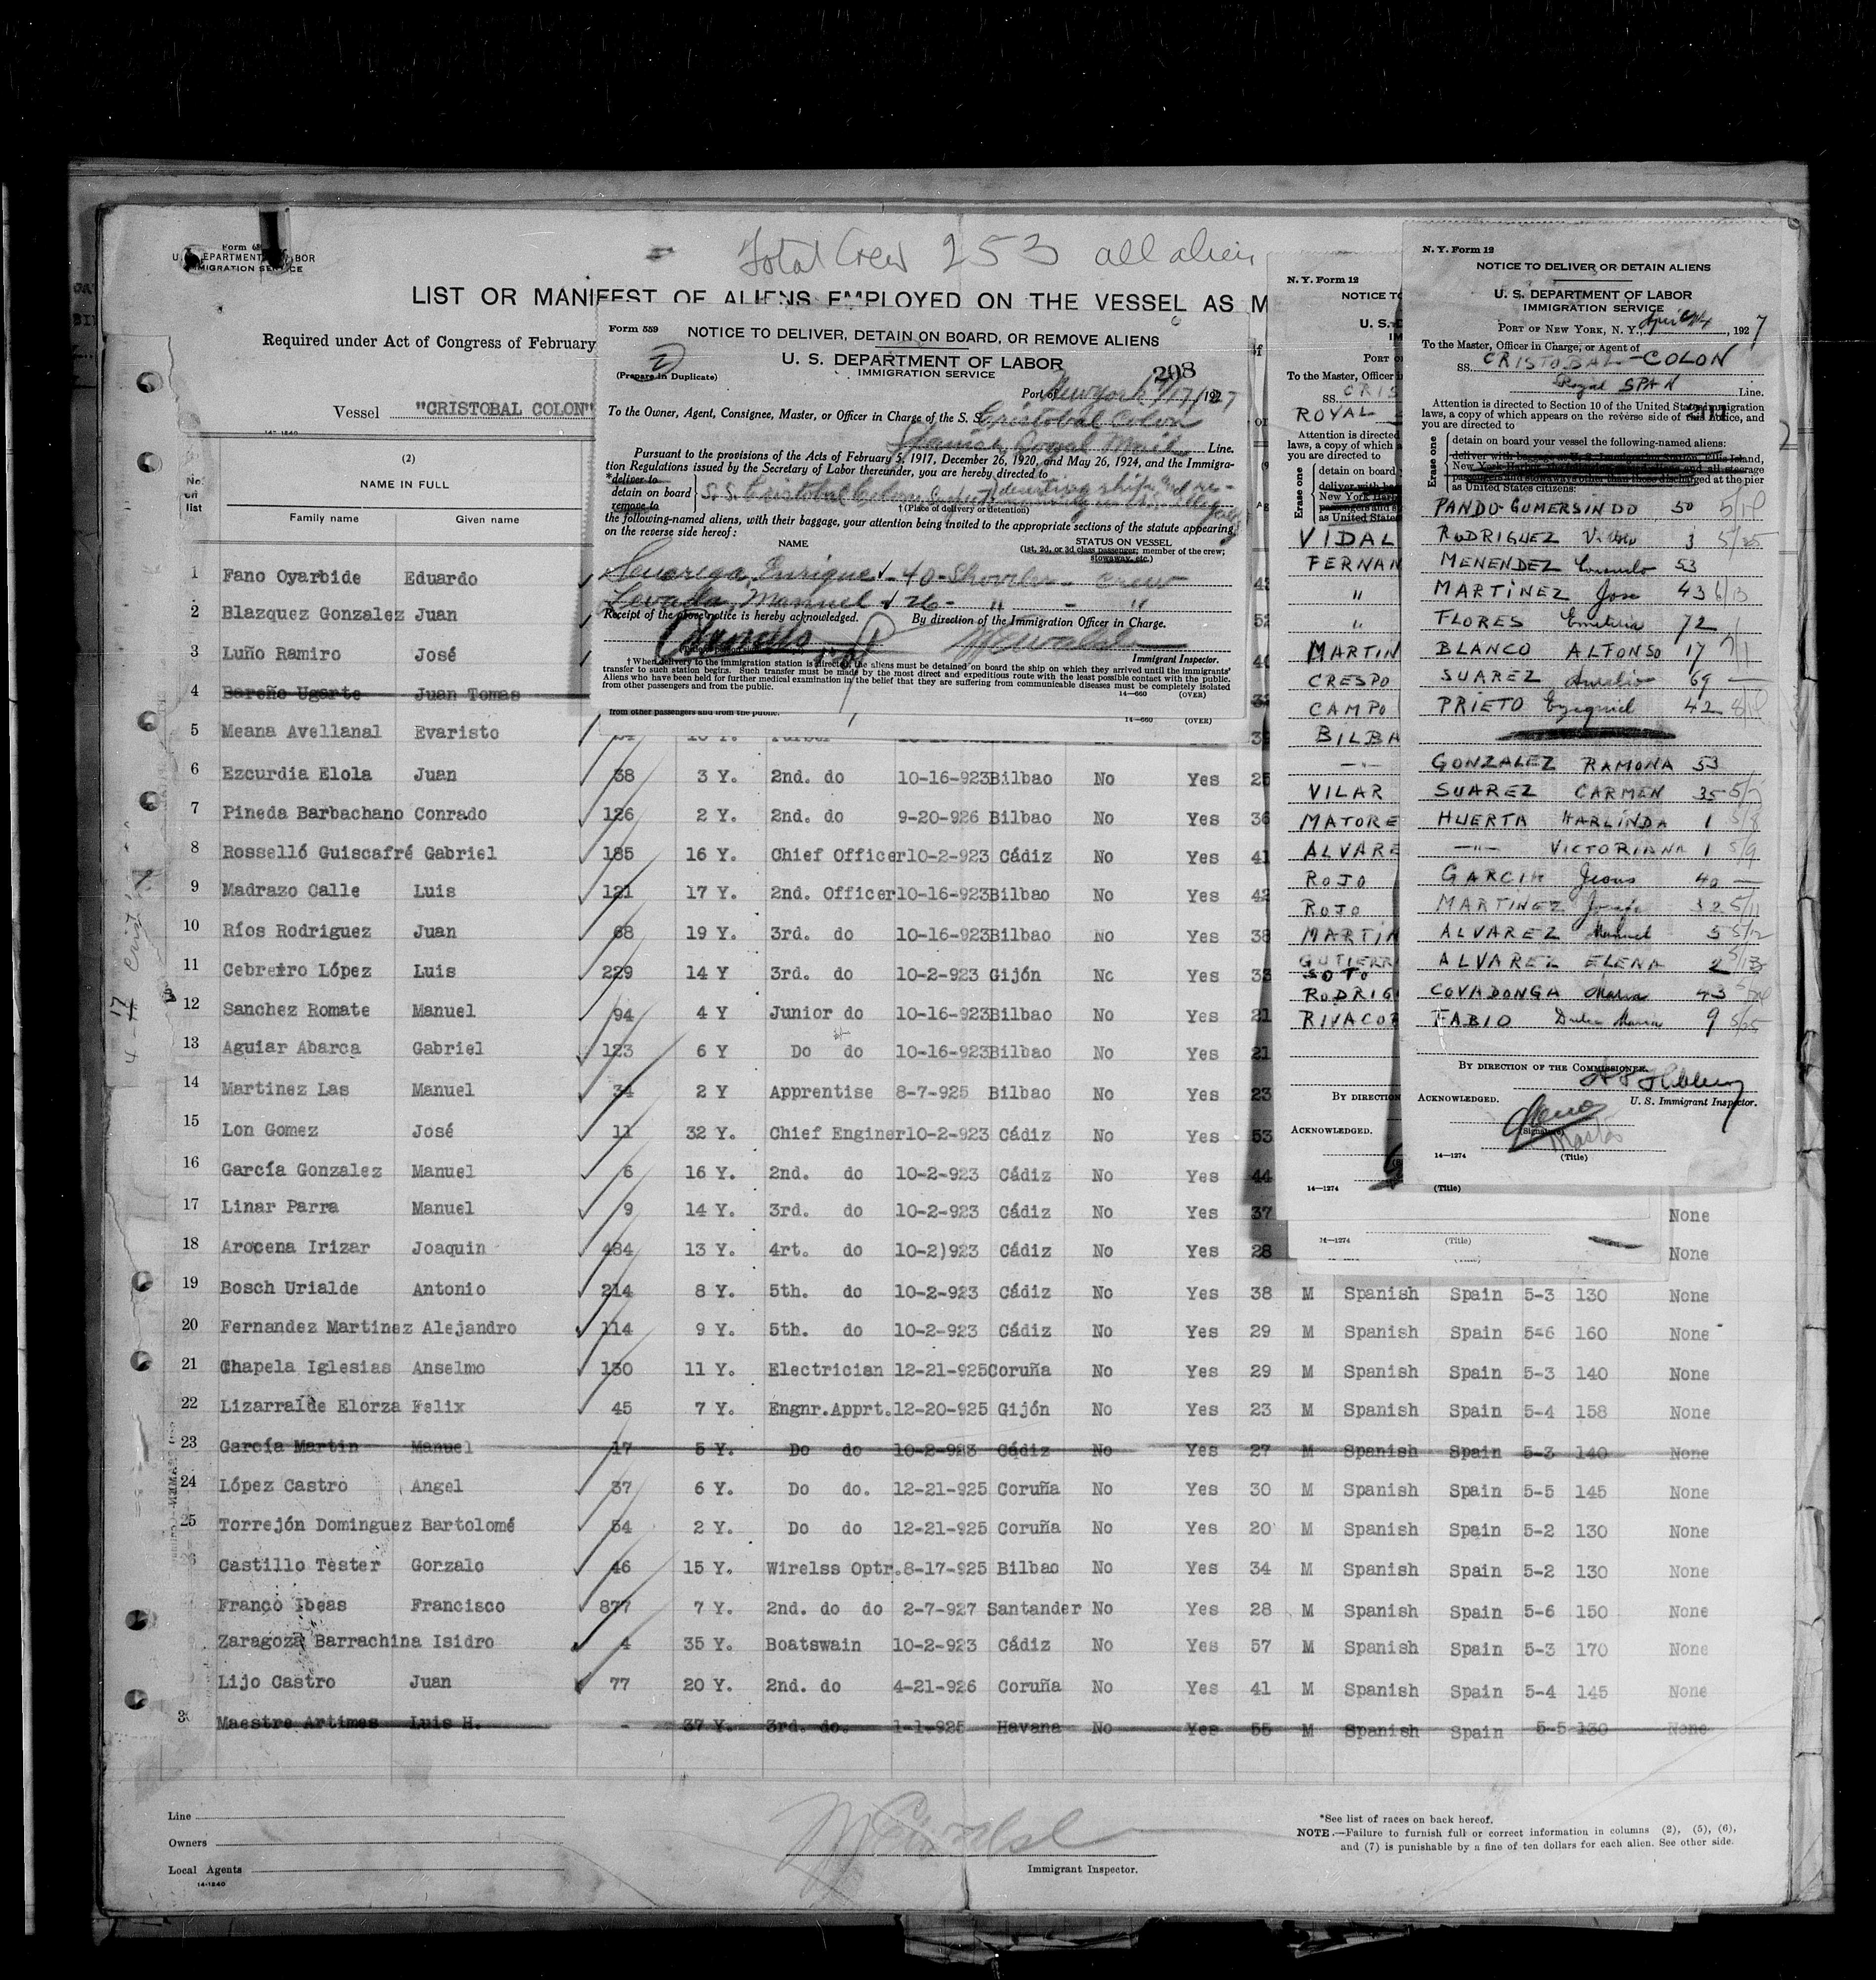 Total Crew 253 all alien
Form 68
U. S. DEPARTMENT OF LABOR
IMMIGRATION SERVICE
LIST OR MANIFEST OF ALIENS EMPLOYED ON THE VESSEL AS M
Required under Act of Congress of February
Vessel "CRISTOBAL COLON"
14-1840
(2)
No. on list
NAME IN FULL
Family name Given name
1 Fano Oyarbide Eduardo
2 Blazquez Gonzalez Juan
3 Luño Ramiro José
4 Bareño Ugarte Juan Tomas
5 Meana Avellanal Evaristo
6 Ezcurdia Elola Juan 38 3 Y. 2nd. do 10-16-923 Bilbao No Yes 25
7 Pineda Barbachano Conrado 126 2 Y. 2nd. do 9-20-926 Bilbao No Yes 36
8 Rosselló Guiscafré Gabriel 185 16 Y. Chief Officer 10-2-923 Cádiz No Yes 41
9 Madrazo Calle Luis 121 17 Y. 2nd. Officer 10-16-923 Bilbao No Yes 42
10 Ríos Rodriguez Juan 68 19 Y. 3rd. do 10-16-923 Bilbao No Yes 38
11 Cebreiro López Luis 229 14 Y 3rd. do 10-2-923 Gijón No Yes 33
12 Sanchez Romate Manuel 94 4 Y Junior do 10-16-923 Bilbao No Yes 21
13 Aguiar Abarca Gabriel 123 6 Y Do do 10-16-923 Bilbao No Yes 21
14 Martinez Las Manuel 34 2 Y Apprentise 8-7-925 Bilbao No Yes 23
15 Lon Gomez José 11 32 Y. Chief Enginer 10-2-923 Cádiz No Yes 53
16 García Gonzalez Manuel 6 16 Y. 2nd. do 10-2-923 Cádiz No Yes 44
17 Linar Parra Manuel 9 14 Y. 3rd. do 10-2-923 Cádiz No Yes 37 None
18 Arocena Irizar Joaquin 484 13 Y. 4rt. do 10-2)923 Cádiz No Yes 28 None
19 Bosch Urialde Antonio 214 8 Y. 5th. do 10-2-923 Cádiz No Yes 38 M Spanish Spain 5-3 130 None
20 Fernandez Martinez Alejandro 114 9 Y. 5th. do 10-2-923 Cádiz No Yes 29 M Spanish Spain 5-6 160 None
21 Chapela Iglesias Anselmo 130 11 Y. Electrician 12-21-925 Coruña No Yes 29 M Spanish Spain 5-3 140 None
22 Lizarralde Elorza Felix 45 7 Y. Engnr.Apprt. 12-20-925 Gijón No Yes 23 M Spanish Spain 5-4 158 None
23 García Martin Manuel 17 5 Y. Do do 10-2-923 Cádiz No Yes 27 M Spanish Spain 5-3 140 None
24 López Castro Angel 37 6 Y. Do do. 12-21-925 Coruña No Yes 30 M Spanish Spain 5-5 145 None
25 Torrejón Dominguez Bartolomé 54 2 Y. Do do 12-21-925 Coruña No Yes 20 M Spanish Spain 5-2 130 None
26 Castillo Tester Gonzalo 46 15 Y. Wirelss Optr. 8-17-925 Bilbao No Yes 34 M Spanish Spain 5-2 130 None
Franco Ibeas Francisco 877 7 Y. 2nd. do do 2-7-927 Santander No Yes 28 M Spanish Spain 5-6 150 None
Zaragoza Barrachina Isidro 4 35 Y. Boatswain 10-2-923 Cádiz No Yes 57 M Spanish Spain 5-3 170 None
Lijo Castro Juan 77 20 Y. 2nd. do 4-21-926 Coruña No Yes 41 M Spanish Spain 5-4 145 None
30 Maestre Artimes Luis H. - 37 Y. 3rd. do. 1-1-925 Havana No Yes 55 M Spanish Spain 5-5 130 None
Line
Owners
Local Agents
14-1840
Immigrant Inspector.
*See list of races on back hereof.
NOTE.—Failure to furnish full or correct information in columns (2), (5), (6),
and (7) is punishable by a fine of ten dollars for each alien. See other side.
Form 559
NOTICE TO DELIVER, DETAIN ON BOARD, OR REMOVE ALIENS
U. S. DEPARTMENT OF LABOR
IMMIGRATION SERVICE
(Prepare in Duplicate)
208
Port of New York 4/17/1927
To the Owner, Agent, Consignee, Master, or Officer in Charge of the S. S. Cristobal Colon
Spanish Royal Mail Line.
Pursuant to the provisions of the Acts of February 5, 1917, December 26, 1920, and May 26, 1924, and the Immigra-
tion Regulations issued by the Secretary of Labor thereunder, you are hereby directed to
*deliver to
detain on board S.S. Cristobal Colon
remove to
† (Place of delivery or detention)
the following-named aliens, with their baggage, your attention being invited to the appropriate sections of the statute appearing
on the reverse side hereof:
NAME STATUS ON VESSEL
(1st, 2d, or 3d class passenger; member of the crew; stowaway, etc.)
Enrique 40 - crew
Manuel 26 - " - "
Receipt of the above notice is hereby acknowledged. By direction of the Immigration Officer in Charge.
Immigrant Inspector.
† When delivery to the immigration station is directed, the aliens must be detained on board the ship on which they arrived until the immigrants'
transfer to such station begins. Such transfer must be made by the most direct and expeditious route with the least possible contact with the public.
Aliens who have been held for further medical examination in the belief that they are suffering from communicable diseases must be completely isolated
from other passengers and from the public.
14—660 (OVER)
from other passengers and from the public.
14—660 (OVER)
N. Y. Form 12
NOTICE TO
U. S. D
IM
PORT O
To the Master, Officer i
SS. CRIS
ROYAL
Attention is directed
laws, a copy of which a
you are directed to
Erase one
detain on board
deliver with ba
New York Harb
passengers and s
as United States
VIDAL
FERNAN
"
"
MARTIN
CRESPO
CAMPO
BILBA
-"-
VILAR
MATORE
ALVARE
ROJO
ROJO
MARTIN
GUTIERR
SOTO
RODRIG
RIVACOB
BY DIRECTION
ACKNOWLEDGED.
14—1274 (Title)
14—1274 (Title)
N. Y. Form 12
NOTICE TO DELIVER OR DETAIN ALIENS
U. S. DEPARTMENT OF LABOR
IMMIGRATION SERVICE
PORT OF NEW YORK, N. Y., April 17, 1927
To the Master, Officer in Charge, or Agent of
SS. CRISTOBAL-COLON
Royal SPAN Line.
Attention is directed to Section 10 of the United States Immigration
laws, a copy of which appears on the reverse side of this notice, and
you are directed to
Erase one
detain on board your vessel the following-named aliens:
deliver with baggage at U. S. Immigration Station, Ellis Island,
New York Harbor,
passengers and stowaways other than those discharged at the pier
as United States citizens:
PANDO GUMERSINDO 50
RODRIGUEZ 3 5/25
MENENDEZ Consuelo 53
MARTINEZ Jose 43 6/13
FLORES 72
BLANCO ALFONSO 17 7/1
SUAREZ Aurelio 69 —
PRIETO Ezequiel 42
GONZALEZ RAMONA 53
SUAREZ CARMEN 35 5/7
HUERTA HARLINDA 1 5/8
-"- VICTORIANA 1 5/9
GARCIA Jesus 40 —
MARTINEZ Josefa 32 5/11
ALVAREZ Manuel 5 5/12
ALVAREZ ELENA 2 5/13
COVADONGA Maria 43
FABIO Dulce Maria 9 5/25
BY DIRECTION OF THE COMMISSIONER.
ACKNOWLEDGED.
U. S. Immigrant Inspector.
(Signature)
Master
14—1274 (Title)